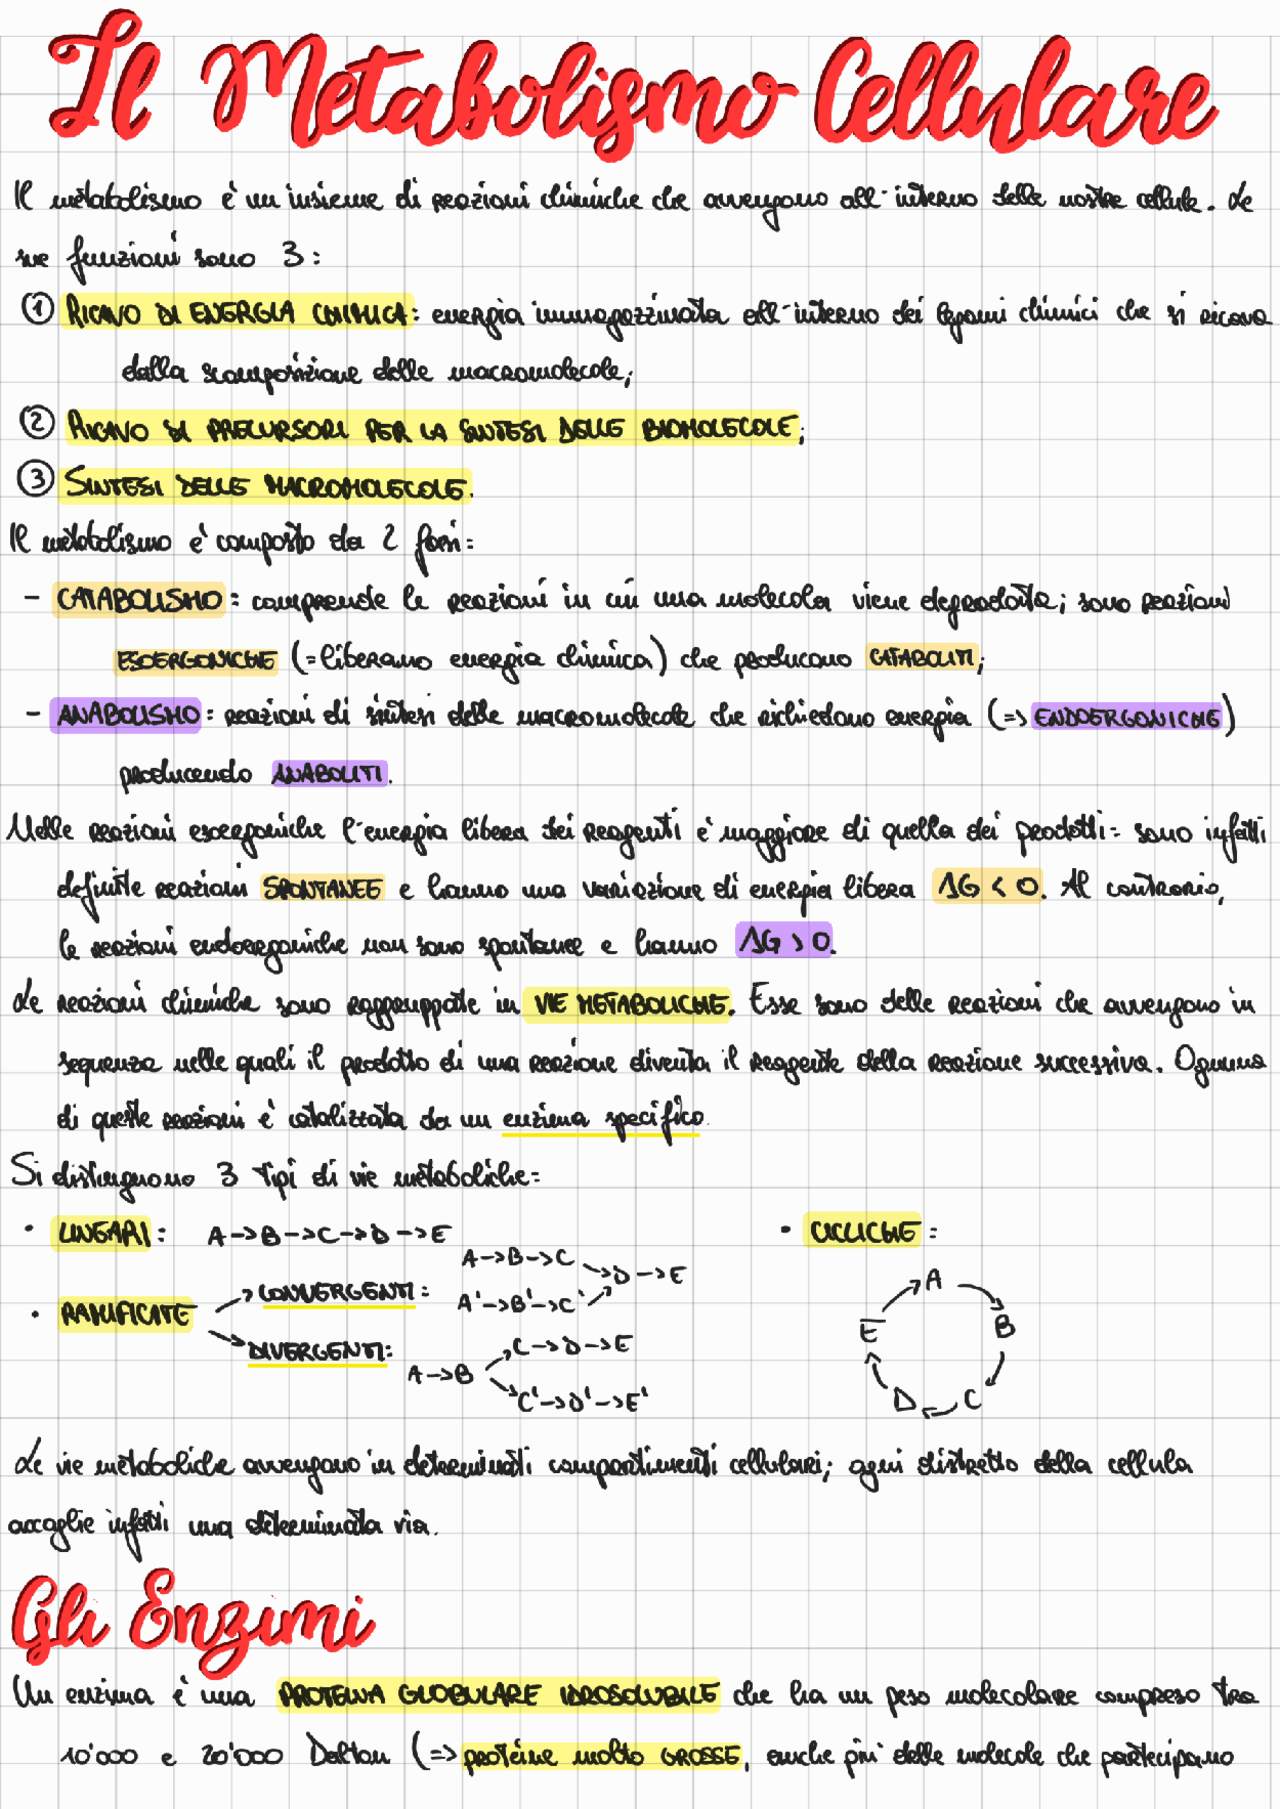 Il Metabolismo Cellulare
Il metabolismo è un insieme di reazioni chimiche che avvengono all'interno delle nostre cellule. Le
sue funzioni sono 3:
① RICAVO DI ENERGIA CHIMICA: energia immagazzinata all'interno dei legami chimici che si ricava
dalla scomposizione delle macromolecole;
② RICAVO DI PRECURSORI PER LA SINTESI DELLE BIOMOLECOLE;
③ SINTESI DELLE MACROMOLECOLE.
Il metabolismo è composto da 2 fasi:
- CATABOLISMO: comprende le reazioni in cui una molecola viene degradata; sono reazioni
ESOERGONICHE (=liberano energia chimica) che producono CATABOLITI;
- ANABOLISMO: reazioni di sintesi delle macromolecole che richiedono energia (=> ENDOERGONICHE)
producendo ANABOLITI.
Nelle reazioni esoergoniche l'energia libera dei reagenti è maggiore di quella dei prodotti: sono infatti
definite reazioni SPONTANEE e hanno una variazione di energia libera ΔG < 0. Al contrario,
le reazioni endoergoniche non sono spontanee e hanno ΔG > 0.
Le reazioni chimiche sono raggruppate in VIE METABOLICHE. Esse sono delle reazioni che avvengono in
sequenza nelle quali il prodotto di una reazione diventa il reagente della reazione successiva. Ognuna
di queste reazioni è catalizzata da un enzima specifico.
Si distinguono 3 tipi di vie metaboliche:
• LINEARI: A->B->C->D->E
• CICLICHE:
A
B
C
D
E
• RAMIFICATE
CONVERGENTI: A->B->C ->D->E
A'->B'->C'
DIVERGENTI: A->B
C->D->E
C'->D'->E'
Le vie metaboliche avvengono in determinati compartimenti cellulari; ogni distretto della cellula
accoglie infatti una determinata via.
Gli Enzimi
Un enzima è una PROTEINA GLOBULARE IDROSOLUBILE che ha un peso molecolare compreso tra
10'000 e 20'000 Dalton (=> proteine molto GROSSE, anche più delle molecole che partecipano